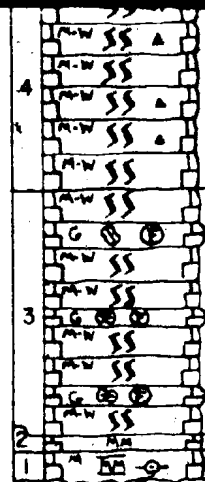 M-W SS
4 M-W SS
M-W SS
M-W SS
M-W SS
M-W SS
G F
M-W SS
SS
3 G F
M-W SS
SS
G F
M-W SS
2 MM
1 M MM